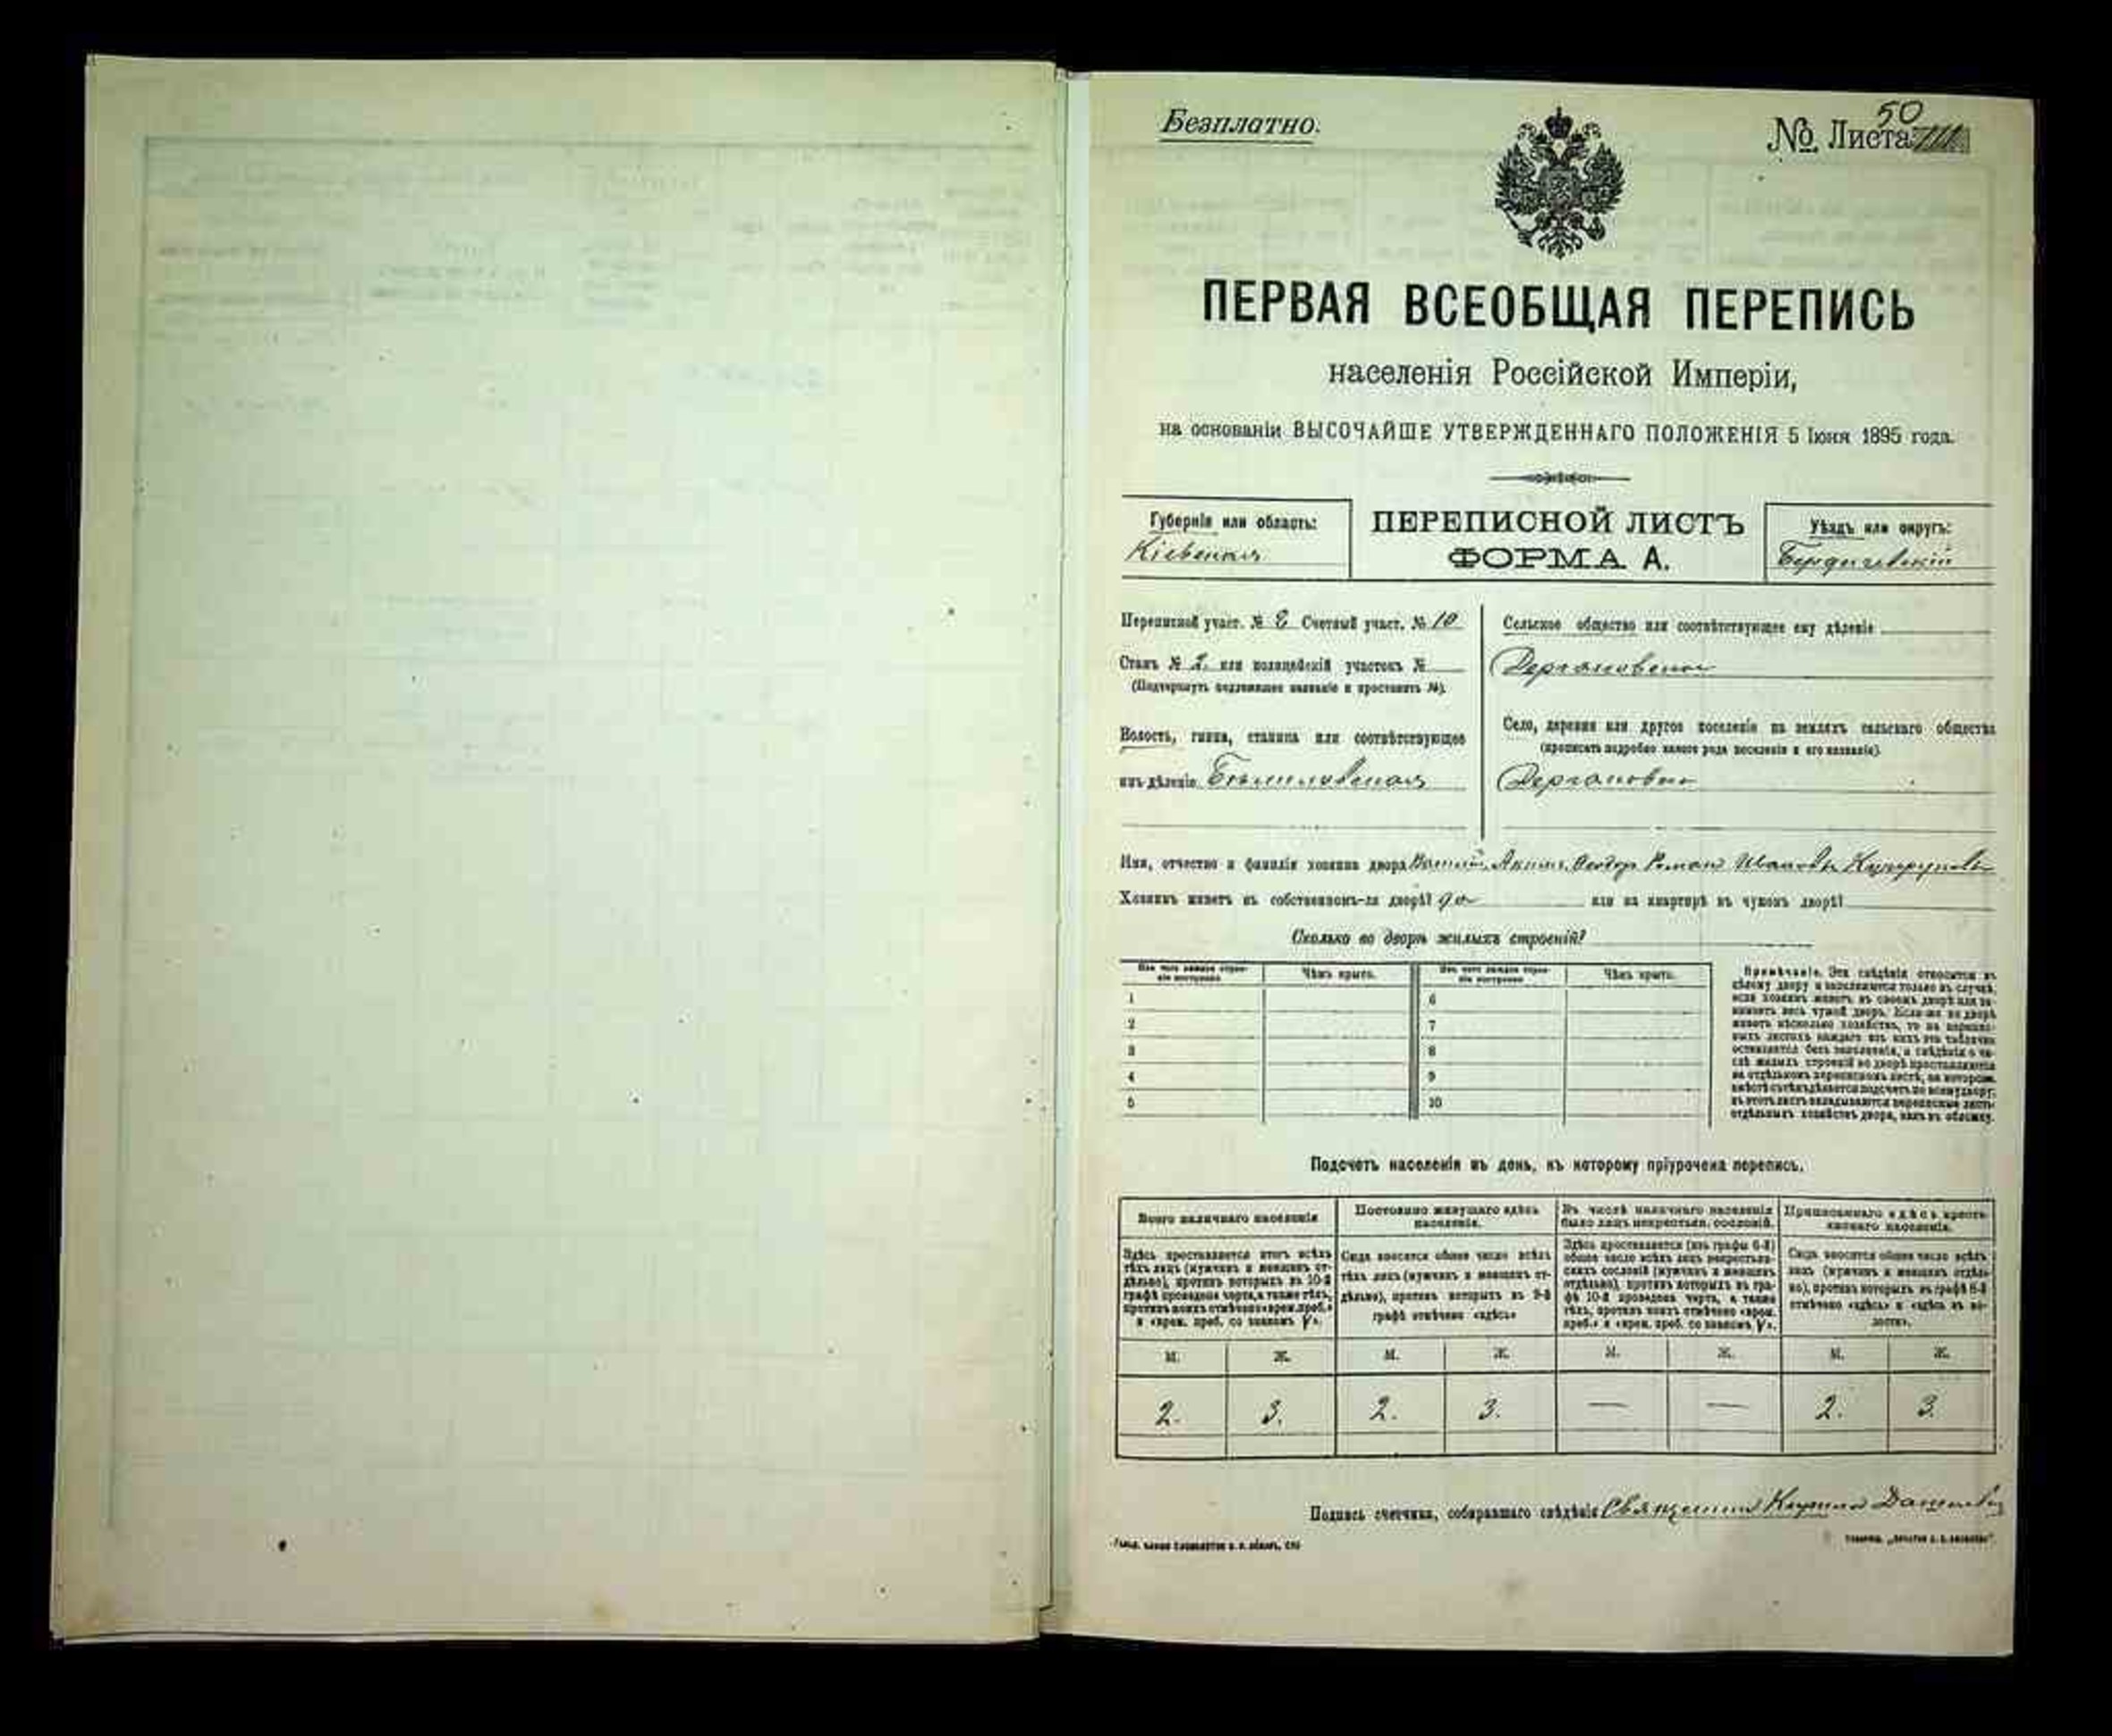 Безплатно.
№ Листа 50
ПЕРВАЯ ВСЕОБЩАЯ ПЕРЕПИСЬ
населенія Россійской Имперіи,
на основаніи ВЫСОЧАЙШЕ УТВЕРЖДЕННАГО ПОЛОЖЕНІЯ 5 Іюня 1895 года.
Губернія или область:
Кіевская
ПЕРЕПИСНОЙ ЛИСТЪ
ФОРМА А.
Уѣздъ или округъ:
Бердичевскій
Переписной участ. № Счетный участ. № 10
Станъ № 2. или полицейскій участокъ №
(Подчеркнуть надлежащее названіе и проставить №).
Волость, гмина, станица или соотвѣтствующее
имъ дѣленіе
Сельское общество или соотвѣтствующее ему дѣленіе
Село, деревня или другое поселеніе на земляхъ сельскаго общества
(прописать подробно какого рода поселеніе и его названіе).
Имя, отчество и фамилія хозяина двора Ѳеодор Роман Ивановы
Хозяинъ живетъ въ собственномъ-ли дворѣ? да или на квартирѣ въ чужомъ дворѣ?
Сколько во дворѣ жилыхъ строеній?
Изъ чего каждое строеніе построено
Чѣмъ крыто.
Изъ чего каждое строеніе построено
Чѣмъ крыто.
1 6
2 7
3 8
4 9
5 10
Примѣчаніе. Эти свѣдѣнія относятся къ
цѣлому двору и заполняются только въ случаѣ,
если хозяинъ живетъ въ своемъ дворѣ или за-
нимаетъ весь чужой дворъ. Если-же во дворѣ
живетъ нѣсколько хозяйствъ, то на перепис-
ныхъ листахъ каждаго изъ нихъ эта табличка
оставляется безъ заполненія, а свѣдѣнія о чи-
слѣ жилыхъ строеній во дворѣ проставляются
на отдѣльномъ переписномъ листѣ, на которомъ
вмѣстѣ съ тѣмъ дѣлается подсчетъ по всему двору;
въ этотъ листъ вкладываются переписные листы
отдѣльныхъ хозяйствъ двора, какъ въ обложку.
Подсчетъ населенія въ день, къ которому пріурочена перепись.
Всего наличнаго населенія
Здѣсь проставляется итогъ всѣхъ
тѣхъ лицъ (мужчинъ и женщинъ от-
дѣльно), противъ которыхъ въ 10-й
графѣ проведена черта, а также тѣхъ,
противъ коихъ отмѣчено «врем. преб.»
и «врем. преб. со знакомъ V».
Постоянно живущаго здѣсь
населенія.
Сюда вносится общее число всѣхъ
тѣхъ лицъ (мужчинъ и женщинъ от-
дѣльно), противъ которыхъ въ 9-й
графѣ отмѣчено «здѣсь»
Въ числѣ наличнаго населенія
было лицъ некрестьян. сословій.
Здѣсь проставляется (изъ графы 6-й)
общее число всѣхъ лицъ некрестьян-
скихъ сословій (мужчинъ и женщинъ
отдѣльно), противъ которыхъ въ гра-
фѣ 10-й проведена черта, а также
тѣхъ, противъ коихъ отмѣчено «врем.
преб.» и «врем. преб. со знакомъ V».
Приписаннаго здѣсь кресть-
янскаго населенія.
Сюда вносится общее число всѣхъ
лицъ (мужчинъ и женщинъ отдѣль-
но), противъ которыхъ въ графѣ 8-й
отмѣчено «здѣсь» и «здѣсь въ во-
лости».
М. Ж. М. Ж. М. Ж. М. Ж.
2. 3. 2. 3. — — 2. 3.
Подпись счетчика, собиравшаго свѣдѣнія Священник